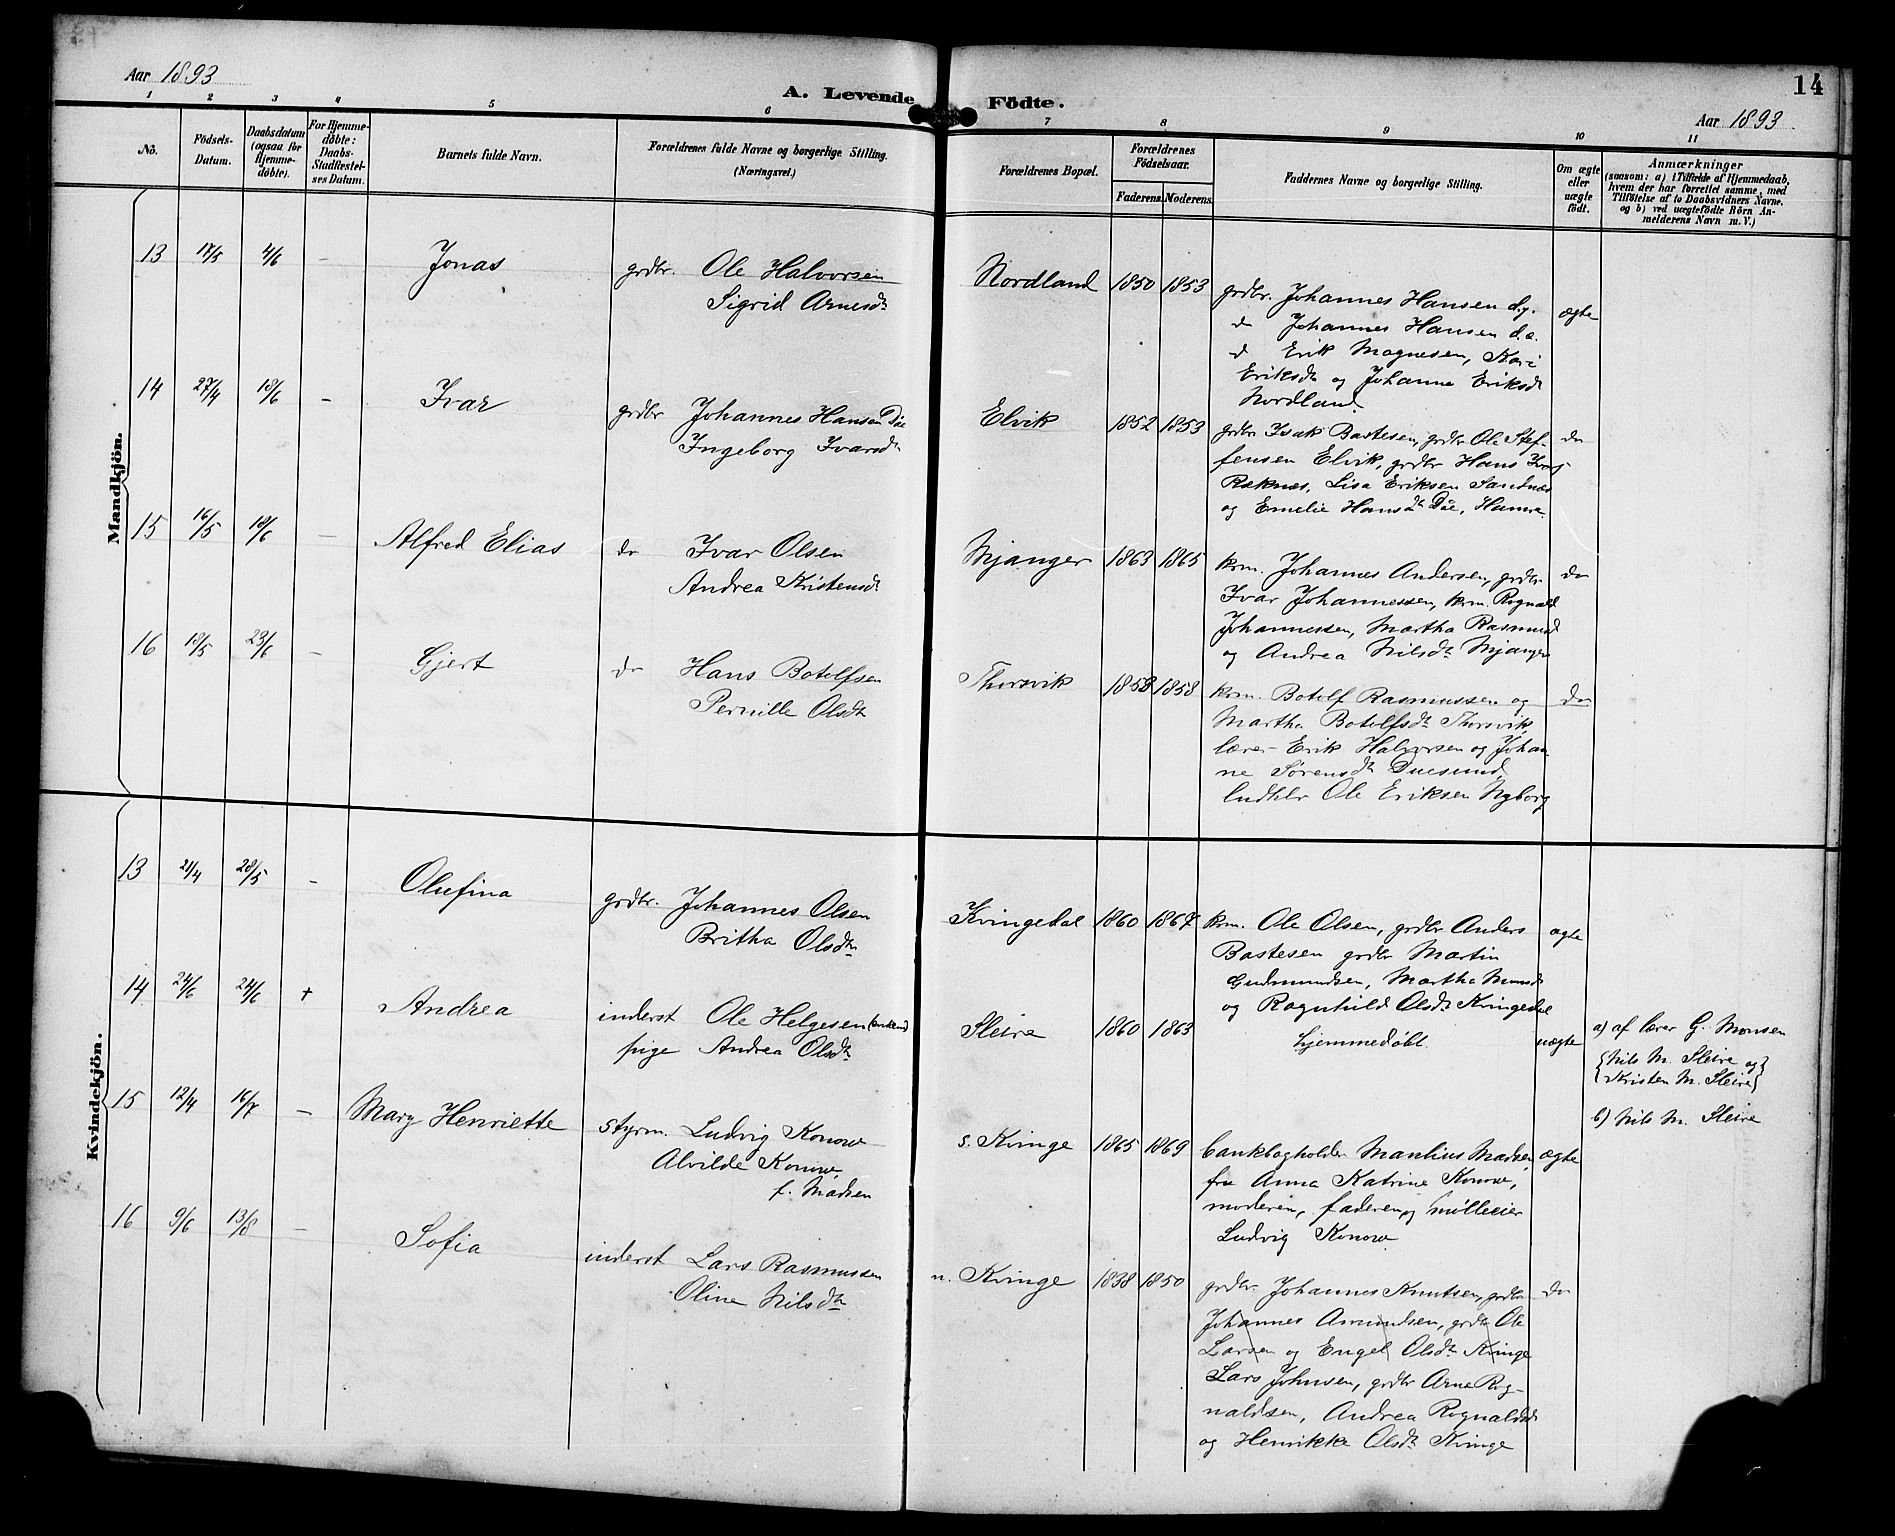 14
Aar 1893
A. Levende Födte.
Aar 1893
1 2 3 4 5 6 7 8 9 10 11
No.
Födsels-Datum.
Daabsdatum (ogsaa for Hjemme-döbte).
For Hjemme-döbte: Daabs-Stadfæstel-ses Datum.
Barnets fulde Navn.
Forældrenes fulde Navne og borgerlige Stilling.
(Næringsvei.)
Forældrenes Bopæl.
Forældrenes Födselsaar.
Faderens. Moderens.
Faddernes Navne og borgerlige Stilling.
Om ægte eller uægte födt.
Anmærkninger
(saasom: a) i Tilfælde af Hjemmedaab,
hvem der har forrettet samme, med
Tilföielse af to Daabsvidners Navne.
og b) ved uægtefödte Börn An-
melderens Navn m. V.)
Mandkjön.
13 17/5 4/6 – Jonas
grdbr. Ole Halvorsen
Sigrid Arnesdtr
Nordland 1850 1853
grdbr. Johannes Hansen d.y.
do Johannes Hansen d.æ.
do Erik Magnesen, Kari
Eriksdtr og Johanne Eriksdtr
Nordland.
ægte
14 27/4 18/6 – Ivar
grdbr Johannes Hansen Döe
Ingeborg Ivarsdtr
Elvik 1852 1853
grdbr Isak Bastesen, grdbr Ole Stef-
fensen Elvik, grdbr Hans Ivars
Reknes, Lisa Eriksen Sandnæs
og Emelie Hansdtr Döe, Hamre.
do
15 16/5 18/6 – Alfred Elias
do Ivar Olsen
Andrea Kristensdtr
Mjanger 1863 1865
krm. Johannes Andersen, grdbr
Ivar Johannessen, krm. Rognald
Johannessen, Martha Rasmusd
og Andrea Nilsdtr Mjanger
do
16 18/5 23/6 – Gjert
do Hans Botolfsen
Pernille Olsdtr
Thorsvik 1853 1858
krm. Botolf Rasmussen og
Martha Botolfsdtr Thorsvik,
lærer Erik Halvorsen og Johan-
ne Sørensdtr Duesund,
Ole Eriksen Nyborg
do
Kvindekjön.
13 21/4 28/5 – Olufina
grdbr. Johannes Olsen
Britha Olsdtr
Kvingedal 1860 1867
krm. Ole Olsen, grdbr Anders
Bastesen grdbr Martin
Gudmundsen, Martha Monsdtr
og Ragnhild Olsdtr Kvingedal
ægte
14 24/6 24/6 + Andrea
inderst Ole Helgesen (enkem)
pige Andrea Olsdtr
Sleire 1860 1863
hjemmedøbt.
uægte
a) af lærer G. Monsen
{Nils M. Sleire og}
{Kristen M. Sleire}
b) Nils M. Sleire
15 12/4 16/7 – Mary Henriette
styrm. Ludvig Konow
Alvilde Konow
f. Madsen
s. Kvinge 1865 1869
bankbogholder Manlius Madsen,
fru Anna Katrine Konow,
moderen, faderen og mølleeier
Ludvig Konow.
ægte
16 9/6 13/8 – Sofia
inderst Lars Rasmussen
Oline Nilsdtr
n. Kvinge 1838 1850
grdbr. Johannes Knutsen, grdbr
Johannes Amundsen, grdbr Ole
Larsen og Engel Olsdtr Kvinge
Lars Johnsen, grdbr Arne Rog-
naldsen, Andrea Rognaldsdtr
og Henrikke Olsdtr Kvinge
do